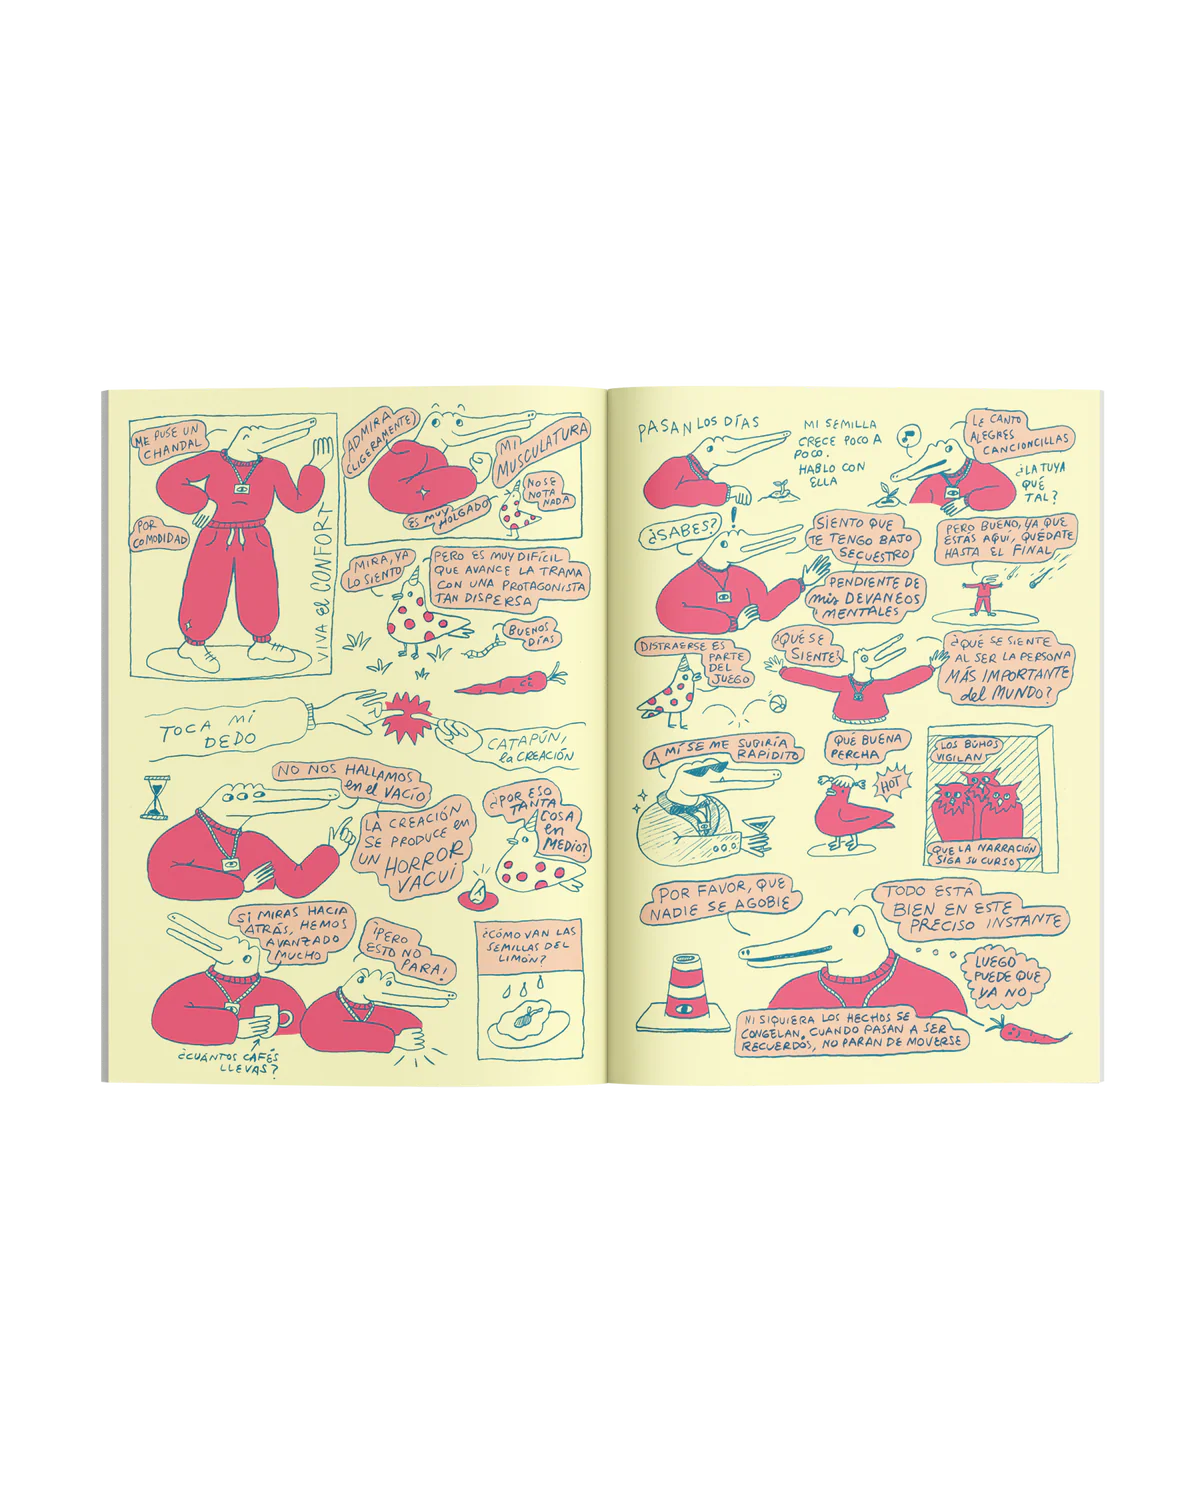 ME PUSE UN
CHANDAL
POR
COMODIDAD
VIVA el CONFORT
ADMIRA
(LIGERAMENTE)
MI
MUSCULATURA
ES MUY
HOLGADO
NO SE
NOTA
NADA
MIRA, YA
LO SIENTO
PERO ES MUY DIFÍCIL
QUE AVANCE LA TRAMA
CON UNA PROTAGONISTA
TAN DISPERSA
BUENOS
DÍAS
TOCA MI
DEDO
CATAPÚN,
la CREACIÓN
NO NOS HALLAMOS
en el VACÍO
LA CREACIÓN
SE PRODUCE en
UN HORROR
VACUI
¿POR ESO
TANTA
COSA
en
MEDIO?
SI MIRAS HACIA
ATRÁS, HEMOS
AVANZADO
MUCHO
¡PERO
ESTO NO
PARA!
¿CUÁNTOS CAFÉS
LLEVAS?
¿CÓMO VAN LAS
SEMILLAS DEL
LIMÓN?
PASAN LOS DÍAS
MI SEMILLA
CRECE POCO A
POCO.
HABLO CON
ELLA
LE CANTO
ALEGRES
CANCIONCILLAS
¿LA TUYA
QUÉ
TAL?
¿SABES?
SIENTO QUE
TE TENGO BAJO
SECUESTRO
PENDIENTE DE
mis DEVANEOS
MENTALES
PERO BUENO, YA QUE
ESTÁS AQUÍ, QUÉDATE
HASTA EL FINAL
DISTRAERSE ES
PARTE
DEL
JUEGO
¿QUÉ SE
SIENTE?
¿QUÉ SE SIENTE
AL SER LA PERSONA
MÁS IMPORTANTE
del MUNDO?
A MÍ SE ME SUBIRÍA
RAPIDITO
QUÉ BUENA
PERCHA
HOT
LOS BÚHOS
VIGILAN
QUE LA NARRACIÓN
SIGA SU CURSO
POR FAVOR, QUE
NADIE SE AGOBIE
TODO ESTÁ
BIEN EN ESTE
PRECISO INSTANTE
LUEGO
PUEDE QUE
YA NO
NI SIQUIERA LOS HECHOS SE
CONGELAN, CUANDO PASAN A SER
RECUERDOS, NO PARAN DE MOVERSE